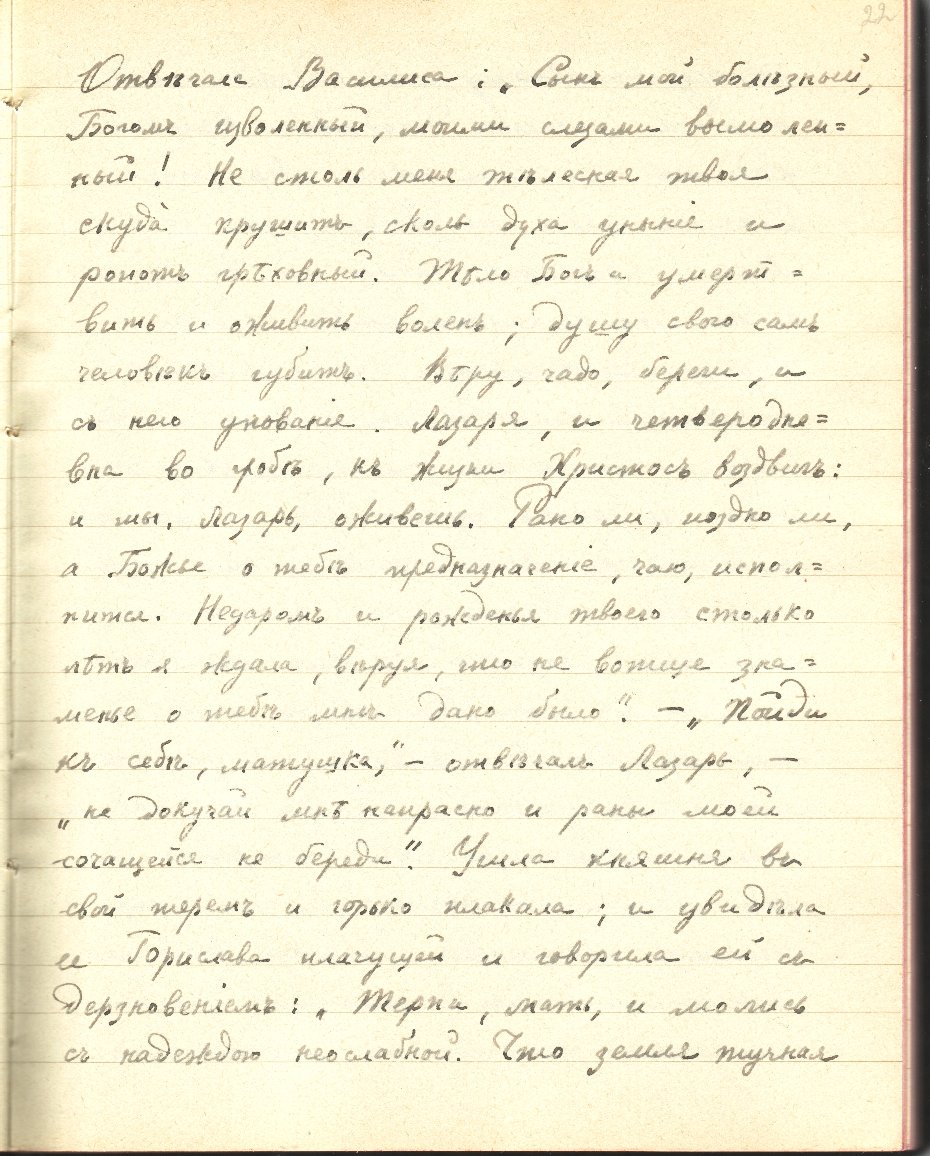 22
Отвѣчала Василиса: „Сынъ мой болѣзный,
Богомъ изволенный, моими слезами вымолен=
ный! Не столь меня тѣлесная твоя
скуда̀ крушитъ, сколь духа уныніе и
ропотъ грѣховный. Тѣло Богъ и умерт=
вить и оживить воленъ; душу свою самъ
человѣкъ губитъ. Вѣру, чадо, береги, и
съ нею упованіе. Лазаря, и четвероднe=
вна во гробѣ, къ жизни Христосъ воздвигъ:
и ты, Лазарь, оживешь. Рано ли, поздно ли,
а Божье о тебѣ предназначеніе, чаю, испол=
нится. Недаромъ и рожденья твоего столько
лѣтъ я ждала, вѣруя, что не вотще зна=
менье о тебѣ мнѣ дано было“. — „Пойди
къ себѣ, матушка,“ — отвѣчалъ Лазарь, —
„не докучай мнѣ напрасно и раны моей
сочащейся не береди“. Ушла княгиня въ
свой теремъ и горько плакала; и увидѣла
ее Горислава плачущей и говорила ей съ
дерзновеніемъ: „Терпи, мать, и молись
съ надеждою неослабной. Что земля тучная